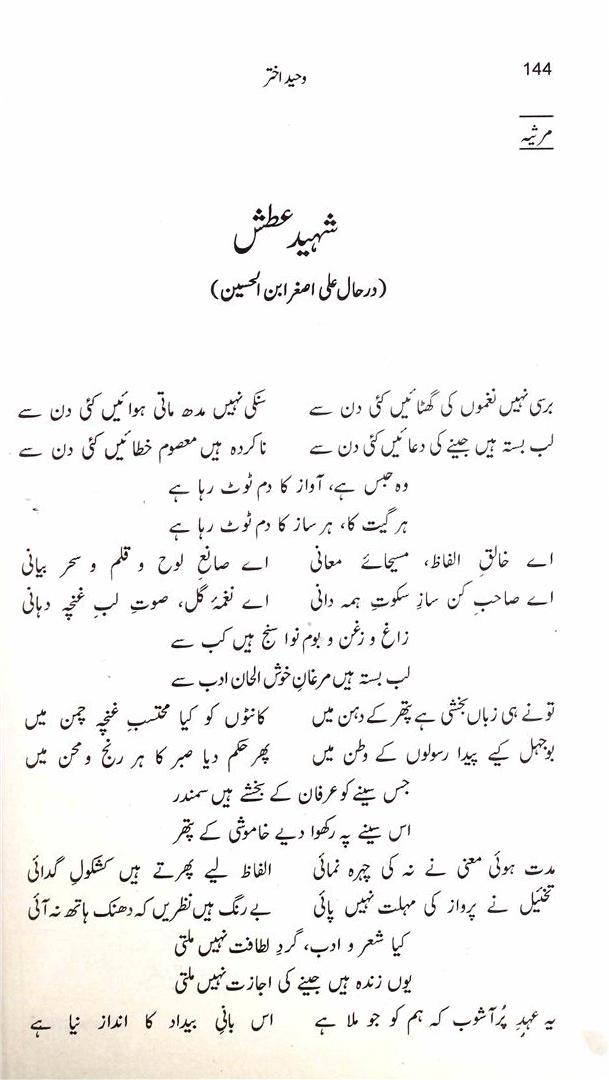 144
وحید اختر
مرثیہ
شہیدِ عطش
(در حال علی اصغر ابن الحسین)
برسی نہیں نغموں کی گھٹائیں کئی دن سے سنکی نہیں مدھ ماتی ہوائیں کئی دن سے
لب بستہ ہیں جینے کی دعائیں کئی دن سے ناکردہ ہیں معصوم خطائیں کئی دن سے
وہ حبس ہے، آواز کا دم ٹوٹ رہا ہے
ہر گیت کا، ہر ساز کا دم ٹوٹ رہا ہے
اے خالقِ الفاظ، مسیحائے معانی اے صانعِ لوح و قلم و سحر بیانی
اے صاحبِ کن سازِ سکوتِ ہمہ دانی اے نغمۂ گل، صوتِ لبِ غنچہ دہانی
زاغ و زغن و بوم نوا سنج ہیں کب سے
لب بستہ ہیں مرغانِ خوش الحان ادب سے
تو نے ہی زباں بخشی ہے پتھر کے دہن میں کانٹوں کو کیا محتسبِ غنچہ چمن میں
بوجہل کیے پیدا رسولوں کے وطن میں پھر حکم دیا صبر کا ہر رنج و محن میں
جس سینے کو عرفان کے بخشے ہیں سمندر
اس سینے پہ رکھوا دیے خاموشی کے پتھر
مدت ہوئی معنی نے نہ کی چہرہ نمائی الفاظ لیے پھرتے ہیں کشکولِ گدائی
تخئیل نے پرواز کی مہلت نہیں پائی بے رنگ ہیں نظریں کہ دھنک ہاتھ نہ آئی
کیا شعر و ادب، گردِ لطافت نہیں ملتی
یوں زندہ ہیں جینے کی اجازت نہیں ملتی
یہ عہدِ پُرآشوب کہ ہم کو جو ملا ہے اس بانیِ بیداد کا انداز نیا ہے